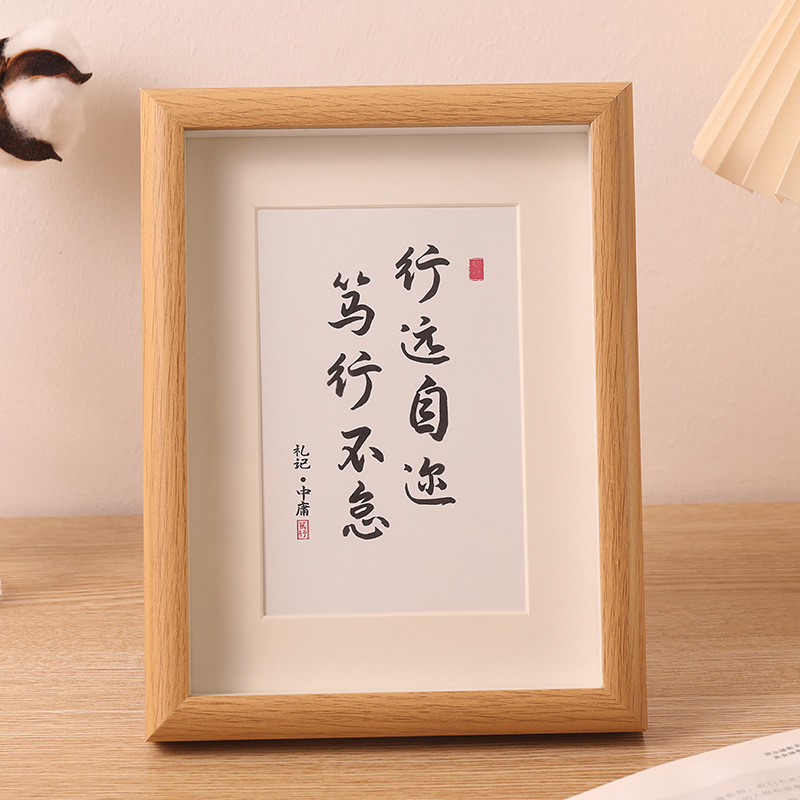 行远自迩
笃行不怠
礼记·中庸
笃行